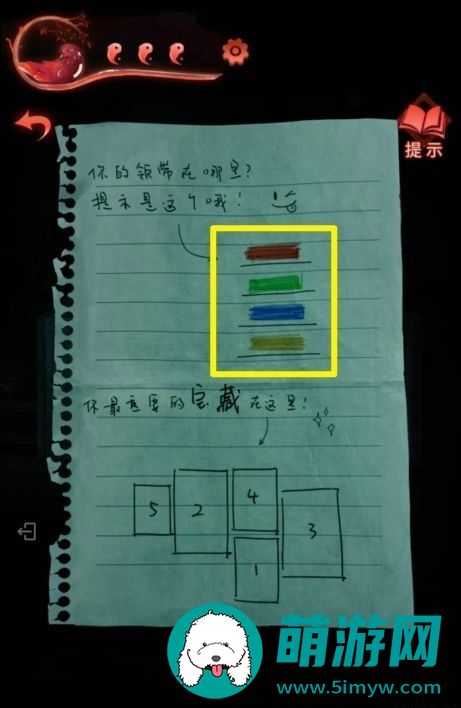 提示
你的领带在哪里?
提示是这个哦!
你最重要的宝藏在这里!
5
2
4
3
1
萌游网
www.5imyw.com